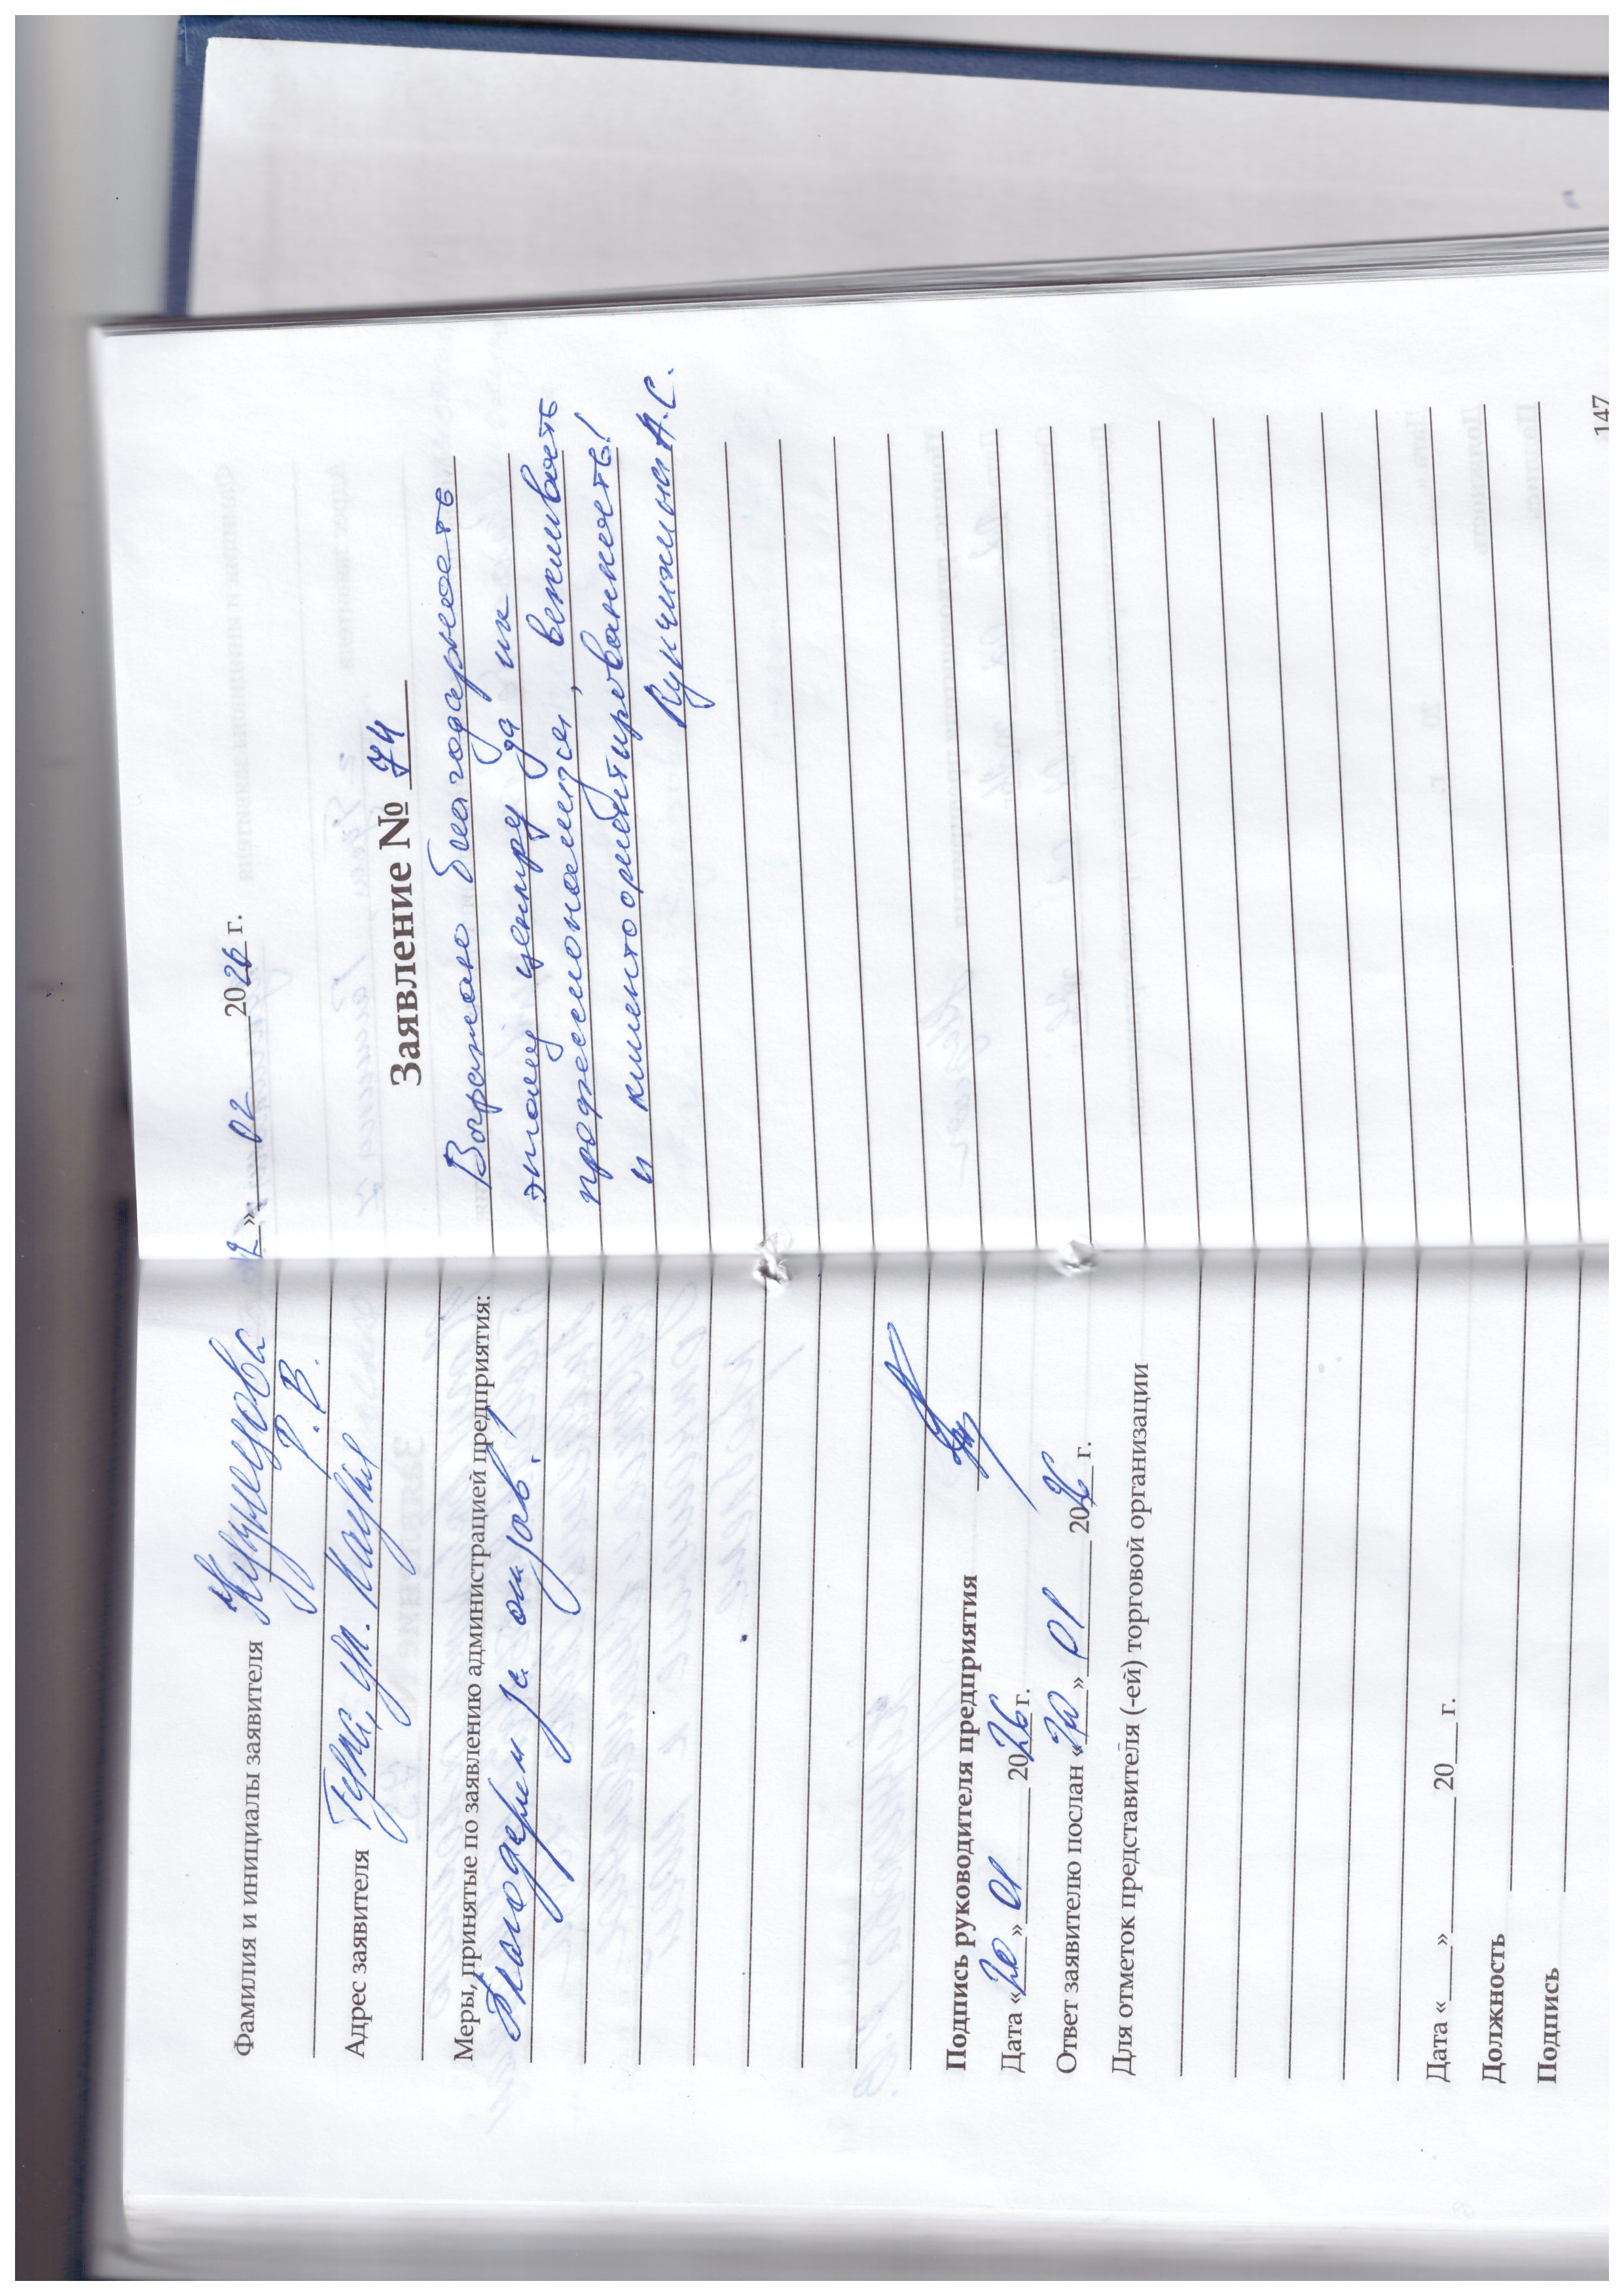 Фамилия и инициалы заявителя Кузнецова
Р.В.
Адрес заявителя Тула, ул.
Меры, принятые по заявлению администрацией предприятия:
Благодарим за отзыв!
Подпись руководителя предприятия
Дата «20» 01 2026 г.
Ответ заявителю послан «20» 01 2026 г.
Для отметок представителя (-ей) торговой организации
Дата «___» ______ 20___ г.
Должность
Подпись
» 02 2026 г.
Заявление № 74
Выражаю благодарность
этому центру за их
профессионализм, вежливость
и клиентоориентированность!
А.С.
147